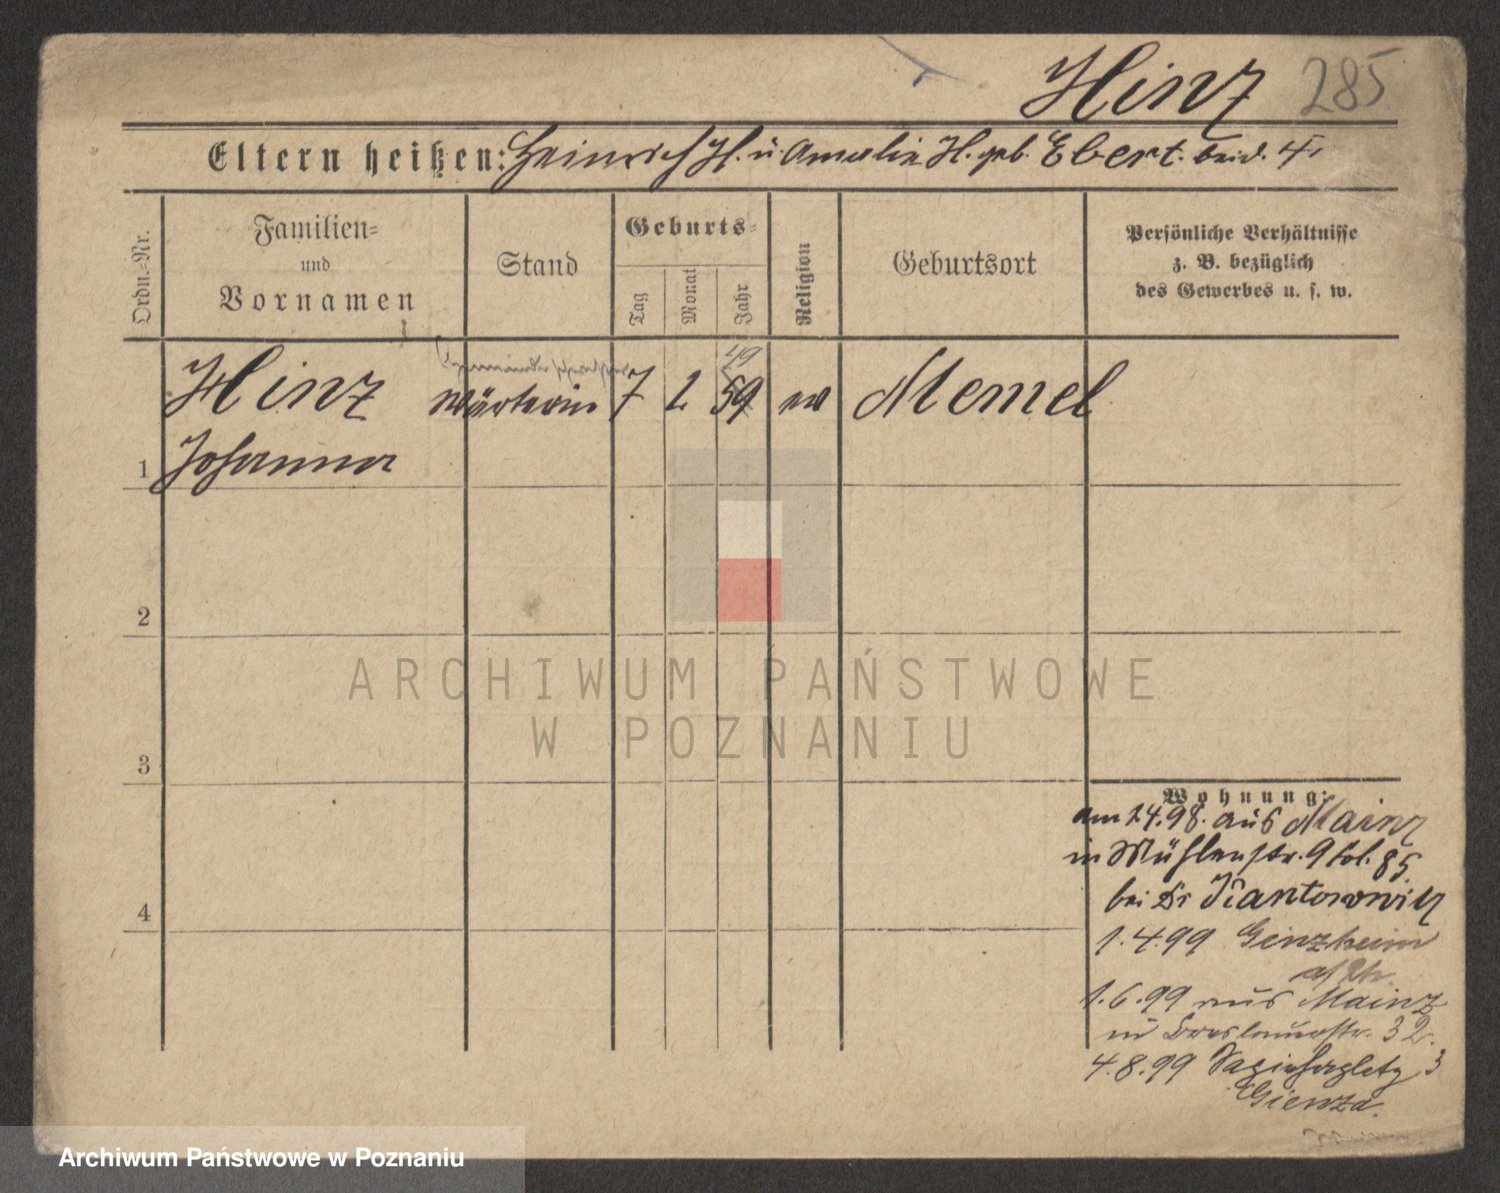 Hinz 285
Eltern heißen: Heinrich H. u. Amalie H. geb. Ebert. beid. †.
Ordn.-Nr.
Familien-
und
Vornamen
Stand
Geburts-
Tag
Monat
Jahr
Religion
Geburtsort
Persönliche Verhältnisse
z. B. bezüglich
des Gewerbes u. s. w.
49
Hinz wärterin 7 2 59 ev Memel
1 Johanna
2
ARCHIWUM PAŃSTWOWE
W POZNANIU
3
Wohnung:
am 1.4.98. aus Mainz
in Mühlenstr. 9 85
bei Dr Kantorowicz
1.4.99
a/Rh.
1.6.99 aus Mainz
in Breslauerstr. 32.
4.8.99 Sapiehaplatz 3
4
Archiwum Państwowe w Poznaniu